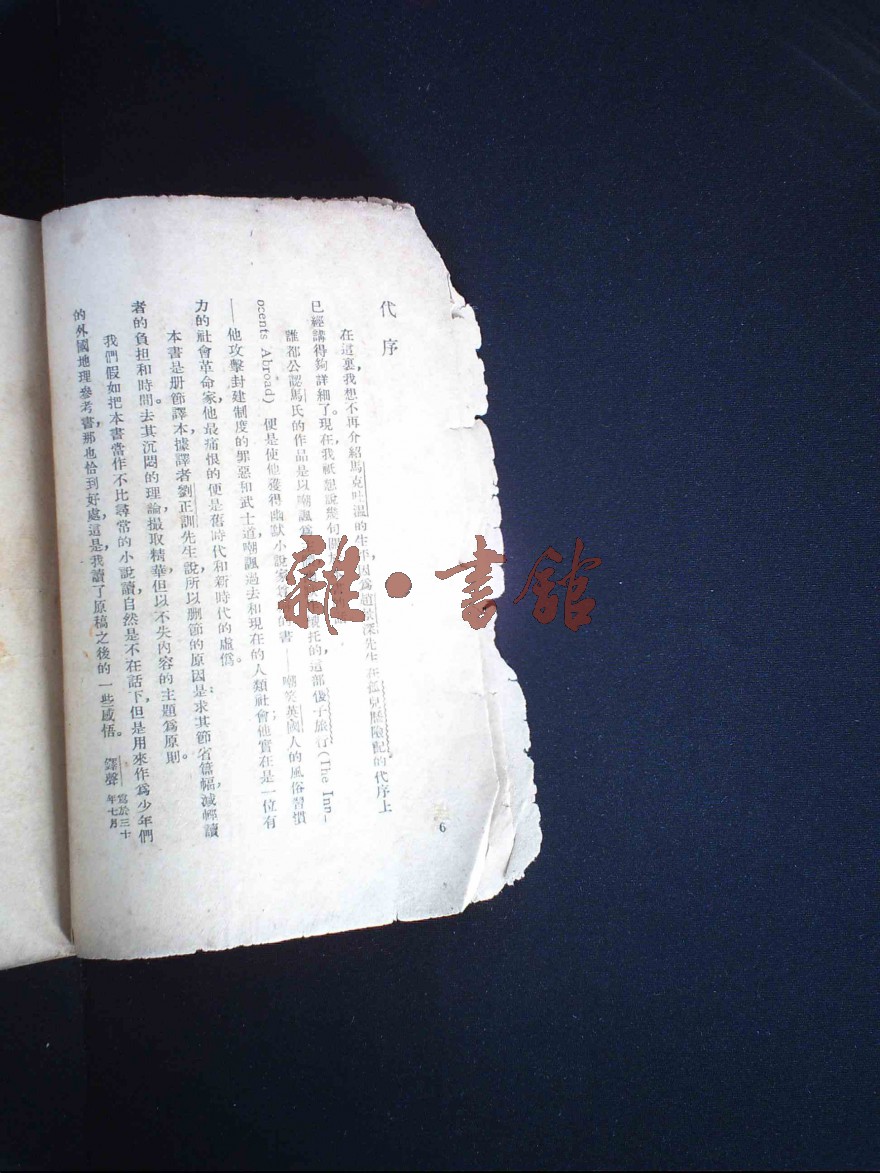 代序
在這裏,我想不再介紹馬克吐溫的生平,因爲
先生在孤兒歷險記的代序上
已經講得夠詳細了。現在,我祇想說幾句
的這部傻子旅行(The Inn-
誰都公認馬氏的作品是以嘲諷爲
ocents Abroad)便是使他獲得幽默小說家
的書——嘲笑英國人的風俗習慣
——他攻擊封建制度的罪惡和武士道,嘲諷過去和現在的人類社會;他實在是一位有
力的社會革命家,他最痛恨的便是舊時代和新時代的虛僞。
本書是册節譯本,據譯者劉正訓先生說,所以刪節的原因是:求其節省篇幅,減輕讀
者的負担和時間。去其沉悶的理論,撮取精華,但以不失內容的主題爲原則。
我們假如把本書當作不比尋常的小說讀,自然是不在話下,但是用來作爲少年們
的外國地理參考書,那也恰到好處,這是,我讀了原稿之後的一些感悟。
鐸聲
寫於三十
年七月
6
雜·書館